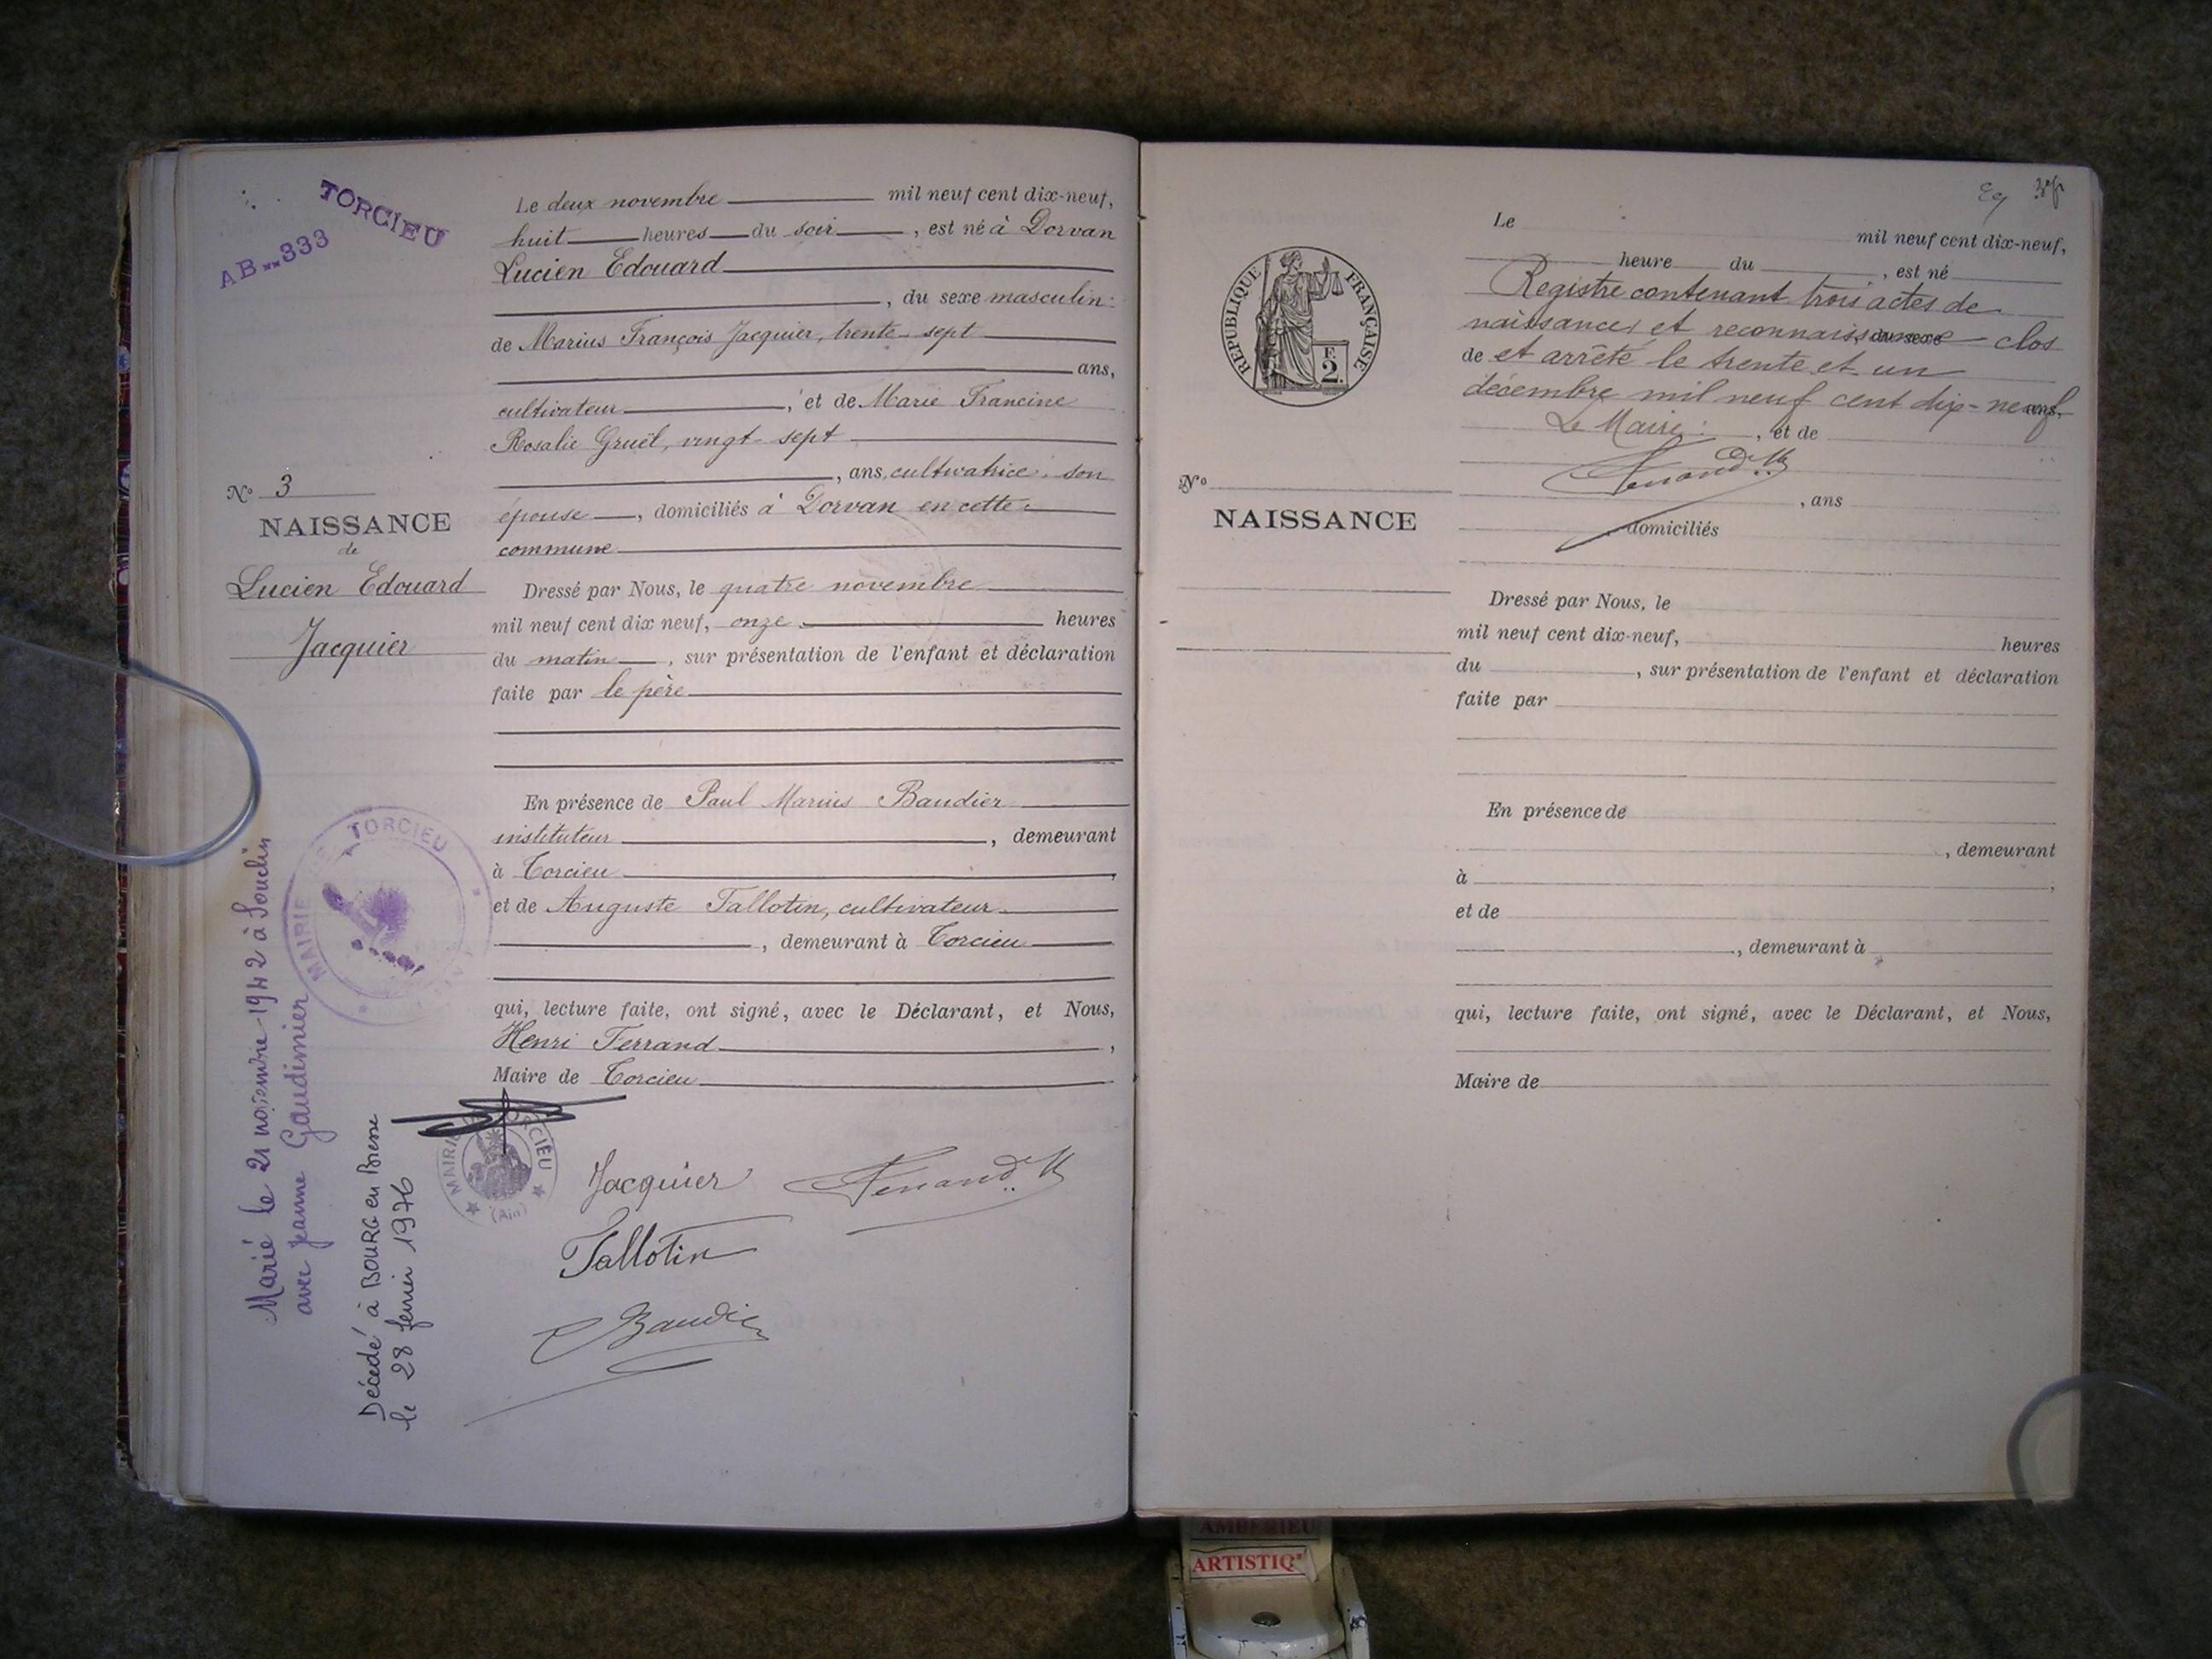 TORCIEU
AB 333
Le deux novembre mil neuf cent dix-neuf,
huit heures du soir, est né à Dorvan
Lucien Edouard
, du sexe masculin:
de Marius François Jacquier, trente-sept
ans,
cultivateur, et de Marie Francine
Rosalie Gruël, vingt-sept
, ans, cultivatrice, son
épouse, domiciliés à Dorvan en cette
commune
No 3
NAISSANCE
de
Lucien Edouard
Jacquier
Dressé par Nous, le quatre novembre
mil neuf cent dix neuf, onze heures
du matin, sur présentation de l'enfant et déclaration
faite par le père
En présence de Paul Marius Baudier
instituteur, demeurant
à Torcieu,
et de Auguste Tallotin, cultivateur
, demeurant à Torcieu
qui, lecture faite, ont signé, avec le Déclarant, et Nous,
Henri Ferrand,
Maire de Torcieu
MAIRIE TORCIEU
Marié le 21 novembre 1942 à Souclin
avec Jeanne Gaudimier
Décédé à BOURG en Bresse
le 28 février 1976
MAIRIE TORCIEU
(Ain)
Jacquier
Tallotin
Baudier
Le mil neuf cent dix-neuf,
heure du , est né
Registre contenant trois actes de
naissance et reconnaissance clos
du sexe
de et arrêté le trente et un
décembre mil neuf cent dix-neuf
ans,
Le Maire:
, et de
REPUBLIQUE FRANÇAISE
F.
2.
No
, ans
NAISSANCE
domiciliés
Dressé par Nous, le
mil neuf cent dix-neuf, heures
du , sur présentation de l'enfant et déclaration
faite par
En présence de
, demeurant
à ,
et de
, demeurant à
qui, lecture faite, ont signé, avec le Déclarant, et Nous,
Maire de
AMBERIEU
ARTISTIQ'